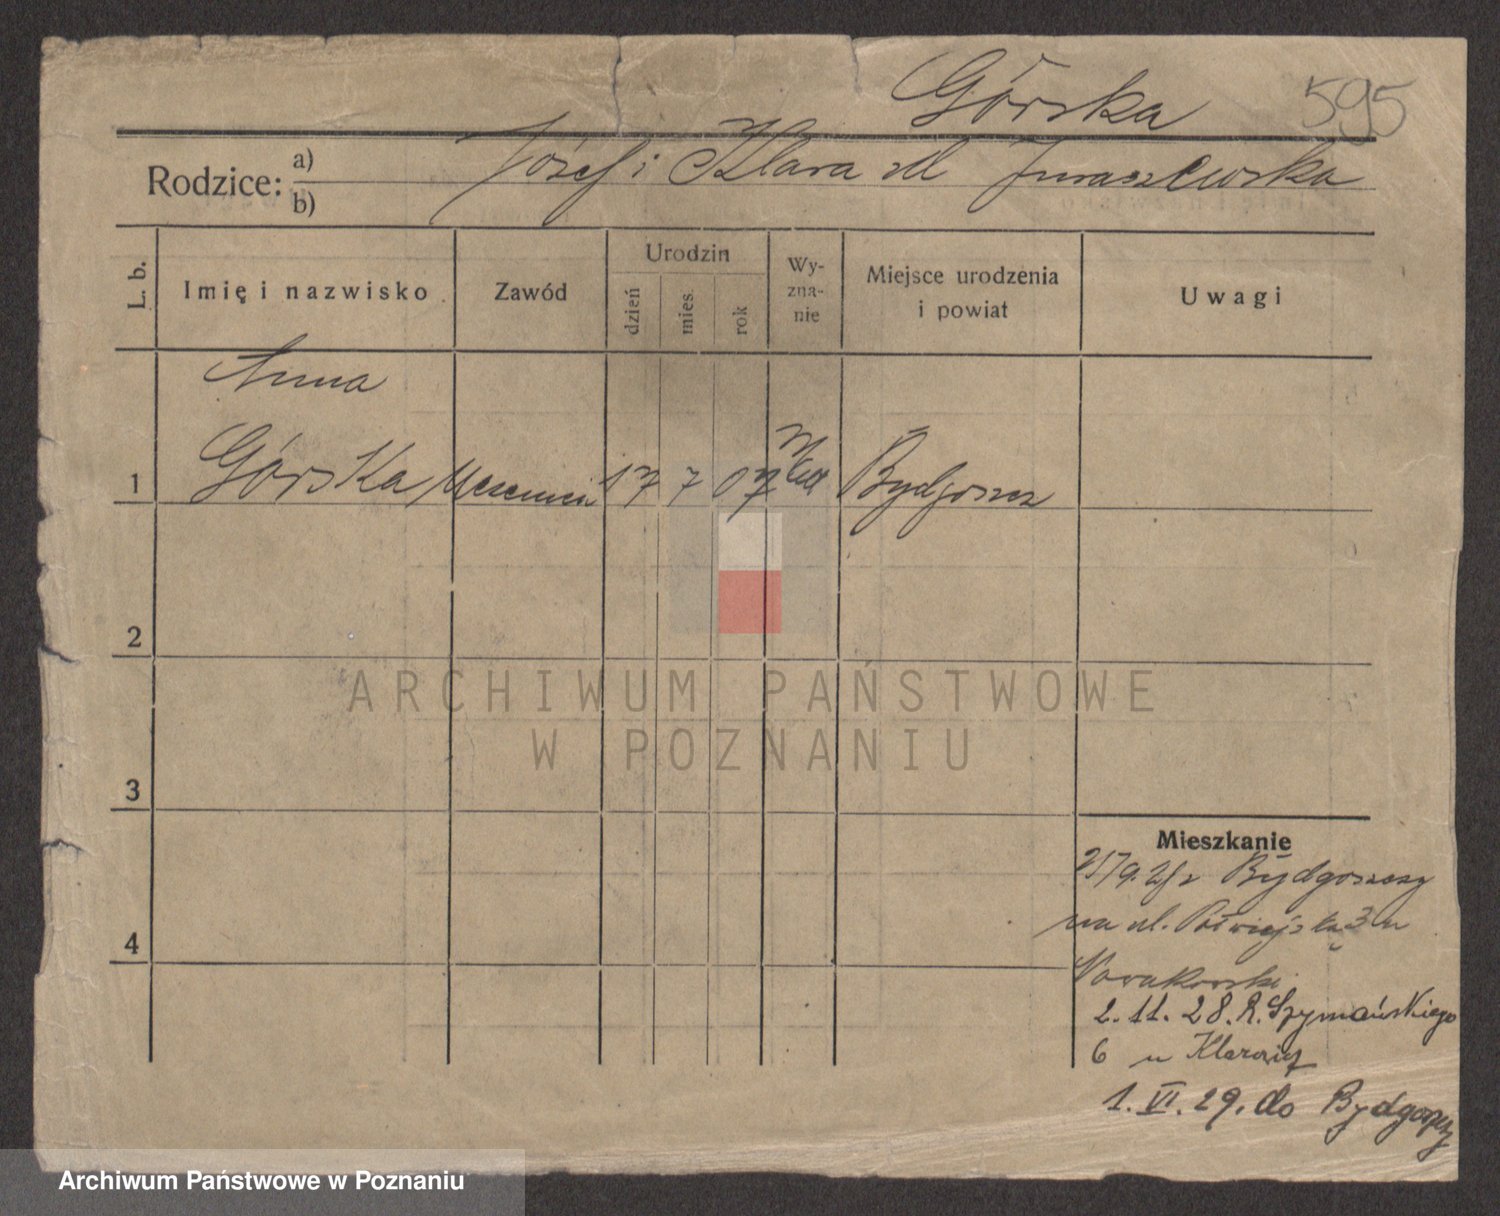 Górska 595
Rodzice: a) Józef i Klara zd Juraszewska
b)
L. b.
Imię i nazwisko
Zawód
Urodzin
dzień
mies.
rok
Wy-
zna-
nie
Miejsce urodzenia
i powiat
Uwagi
Anna
1 Górska 17 7 07 Bydgoszcz
2
3
4
Mieszkanie
z Bydgoszczy
na ul. 3 u
Nowakowski
2. 11. 28. R. Szymańskiego
6 u
1. VI. 29. do Bydgoszczy
ARCHIWUM PAŃSTWOWE
W POZNANIU
Archiwum Państwowe w Poznaniu